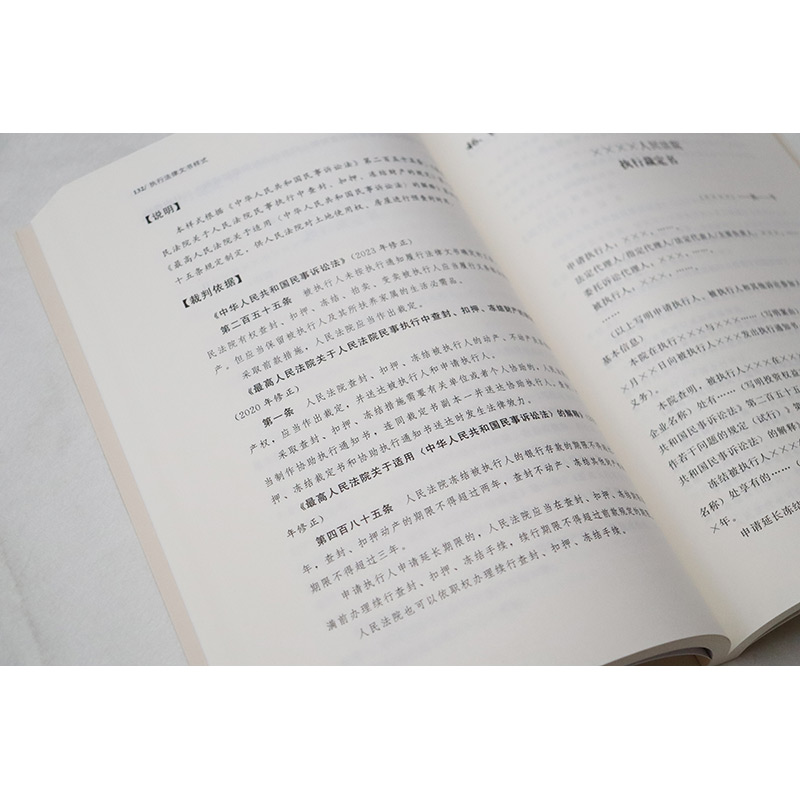 132/ 执行法律文书样式
【说明】
本样式根据《中华人民共和国民事诉讼法》第二百五十五条
民法院关于人民法院民事执行中查封、扣押、冻结财产的
《最高人民法院关于适用〈中华人民共和国民事诉讼法〉的解释》
十五条规定制定，供人民法院对土地使用权、房屋进行预查封时
【裁判依据】
《中华人民共和国民事诉讼法》（2023年修正）
第二百五十五条 被执行人未按执行通知履行法律文书确定的
民法院有权查封、扣押、冻结、拍卖、变卖被执行人应当履行义务
产。但应当保留被执行人及其所扶养家属的生活必需品。
采取前款措施，人民法院应当作出裁定。
《最高人民法院关于人民法院民事执行中查封、扣押、冻结财产
（2020年修正）
第一条 人民法院查封、扣押、冻结被执行人的动产、不动产
产权，应当作出裁定，并送达被执行人和申请执行人。
采取查封、扣押、冻结措施需要有关单位或者个人协助的，人民
当制作协助执行通知书，连同裁定书副本一并送达协助执行人。查封、
押、冻结裁定书和协助执行通知书送达时发生法律效力。
《最高人民法院关于适用〈中华人民共和国民事诉讼法〉的解释》
年修正）
第四百八十五条 人民法院冻结被执行人的银行存款的期限不得
年，查封、扣押动产的期限不得超过两年，查封不动产、冻结其他财产
期限不得超过三年。
申请执行人申请延长期限的，人民法院应当在查封、扣押、冻结
满前办理续行查封、扣押、冻结手续，续行期限不得超过前款规定
人民法院也可以依职权办理续行查封、扣押、冻结手续。
××××人民法院
执行裁定书
申请执行人，×××，……
法定代理人/指定代理人/法定代表人/主要负责人
委托诉讼代理人，×××，……
被执行人，×××，……
……
（以上写明申请执行人、被执行人
基本信息）
本院在执行×××与×××……（写明案由）
×月×日向被执行人×××发出执行通知书
义务）。
本院查明，被执行人×××在×××
企业名称）处有……（写明投资权益
共和国民事诉讼法》第二百五十五
作若干问题的规定（试行）》第
共和国民事诉讼法〉的解释》
冻结被执行人×××
名称）处享有的……（
×年。
申请延长冻结